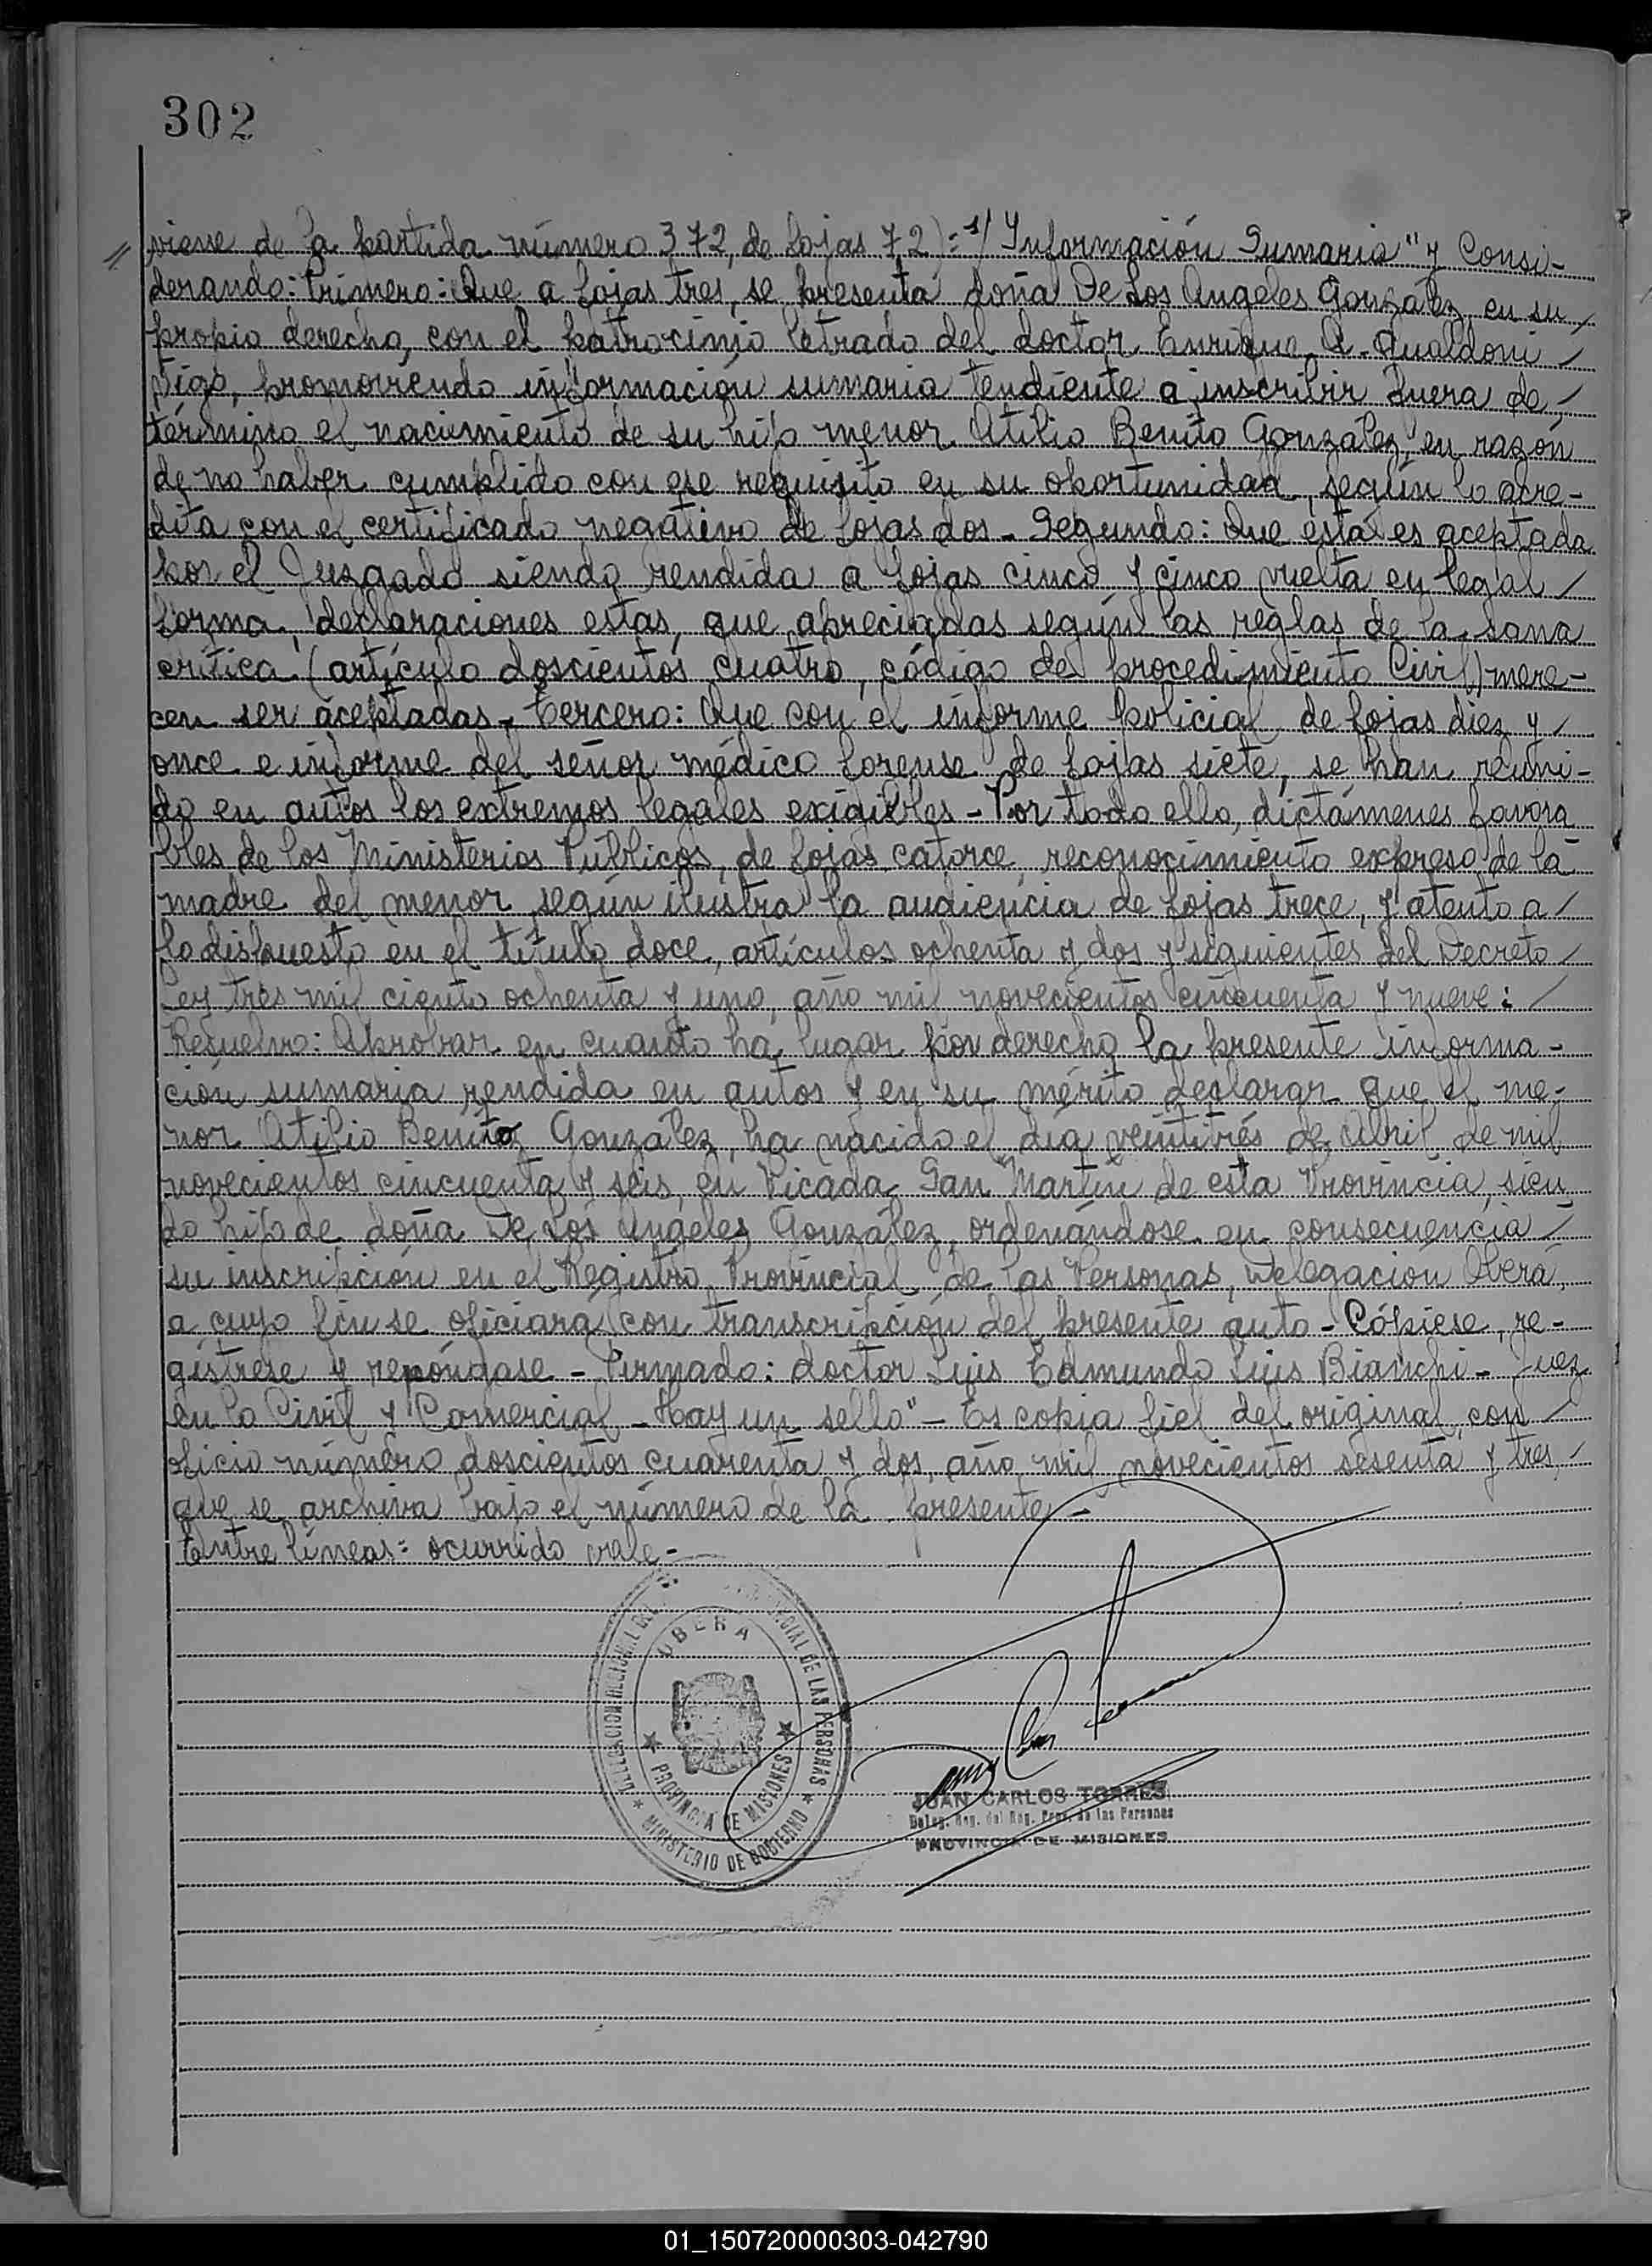 302
// viene de la partida número 372, de fojas 72):= "Información Sumaria" y Consi-
derando: Primero: Que a fojas tres, se presenta doña De Los Angeles González, en su /
propio derecho, con el patrocinio letrado del doctor Enrique A. Gualdoni /
Vigo, promoviendo información sumaria tendiente a inscribir fuera de /
término el nacimiento de su hijo menor Atilio Benito González, en razón
de no haber cumplido con ese requisito en su oportunidad, según lo acre-
dita con el certificado negativo de fojas dos - Segundo: Que ésta es aceptada
por el Juzgado siendo rendida a fojas cinco y cinco vuelta en legal /
forma, declaraciones estas, que apreciadas según las reglas de la sana
crítica (artículo doscientos cuatro, código de procedimiento Civil) mere-
cen ser aceptadas - Tercero: Que con el informe policial de fojas diez y /
once e informe del señor médico forense de fojas siete, se han reuni-
do en autos los extremos legales exigibles - Por todo ello, dictámenes favora
bles de los Ministerios Públicos, de fojas catorce, reconocimiento expreso de la
madre del menor según ilustra la audiencia de fojas trece, y atento a /
lo dispuesto en el título doce, artículos ochenta y dos y siguientes del Decreto /
Ley tres mil ciento ochenta y uno, año mil novecientos cincuenta y nueve: /
Resuelvo: Aprobar en cuanto ha lugar por derecho la presente informa-
ción sumaria rendida en autos y en su mérito declarar que el me-
nor Atilio Benito González, ha nacido el día veintitrés de Abril de mil
novecientos cincuenta y seis, en Picada San Martín de esta Provincia, sien
do hijo de doña De Los Angeles González, ordenándose en consecuencia /
su inscripción en el Registro Provincial de las Personas, Delegación Oberá,
a cuyo fin se oficiará con transcripción del presente auto - Cópiese, re-
gístrese y repóngase - Firmado: doctor Luis Edmundo Luis Bianchi - Juez
en lo Civil y Comercial - Hay un sello" - Es copia fiel del original, con /
oficio número doscientos cuarenta y dos, año mil novecientos sesenta y tres, /
que se archiva bajo el número de la presente -
Entre líneas: ocurrido vale -
OBERA
PROVINCIAL DE LAS PERSONAS
PROVINCIA DE MISIONES
MINISTERIO DE GOBIERNO
JUAN CARLOS TORRES
Deleg. Reg. del Reg. Prov. de las Personas
PROVINCIA DE MISIONES
01_150720000303-042790